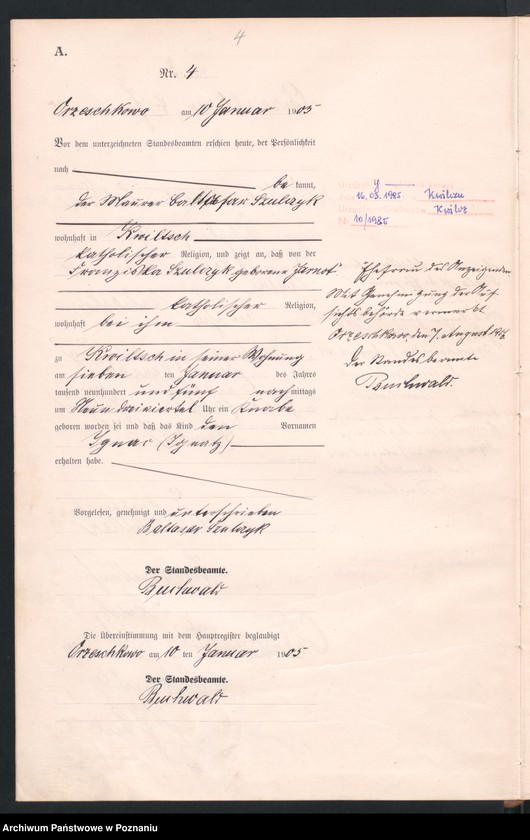 4
A.
Nr. 4
Orzeschkowo am 10 Januar 1905
Vor dem unterzeichneten Standesbeamten erschien heute, der Persönlichkeit
nach
be kannt,
der Maurer Balthasar Szulczyk
wohnhaft in Kwiltsch
katholischer Religion, und zeigt an, daß von der
Franziska Szulczyk geborene Jarnot
katholischer Religion,
wohnhaft bei ihm
zu Kwiltsch in seiner Wohnung
am sieben ten Januar des Jahres
tausend neunhundert und fünf nach mittags
um Neun dreiviertel Uhr ein Knabe
geboren worden sei und daß das Kind den Vornamen
Ignac (Ignatz)
erhalten habe.
Vorgelesen, genehmigt und unterschrieben
Baltasar Szulczyk
Der Standesbeamte.
Buchwald
Die Übereinstimmung mit dem Hauptregister beglaubigt
Orzeschkowo am 10 ten Januar 1905
Der Standesbeamte.
Buchwald
y
16.05.1985 Kwilczu
Kwilcz
10/1985
Ehefrau des Anzeigenden
Mit Genehmigung der Auf-
sichtsbehörde vermerkt
Orzeschkowo, den 7. August
der Standesbeamte
Buchwald.
Archiwum Państwowe w Poznaniu